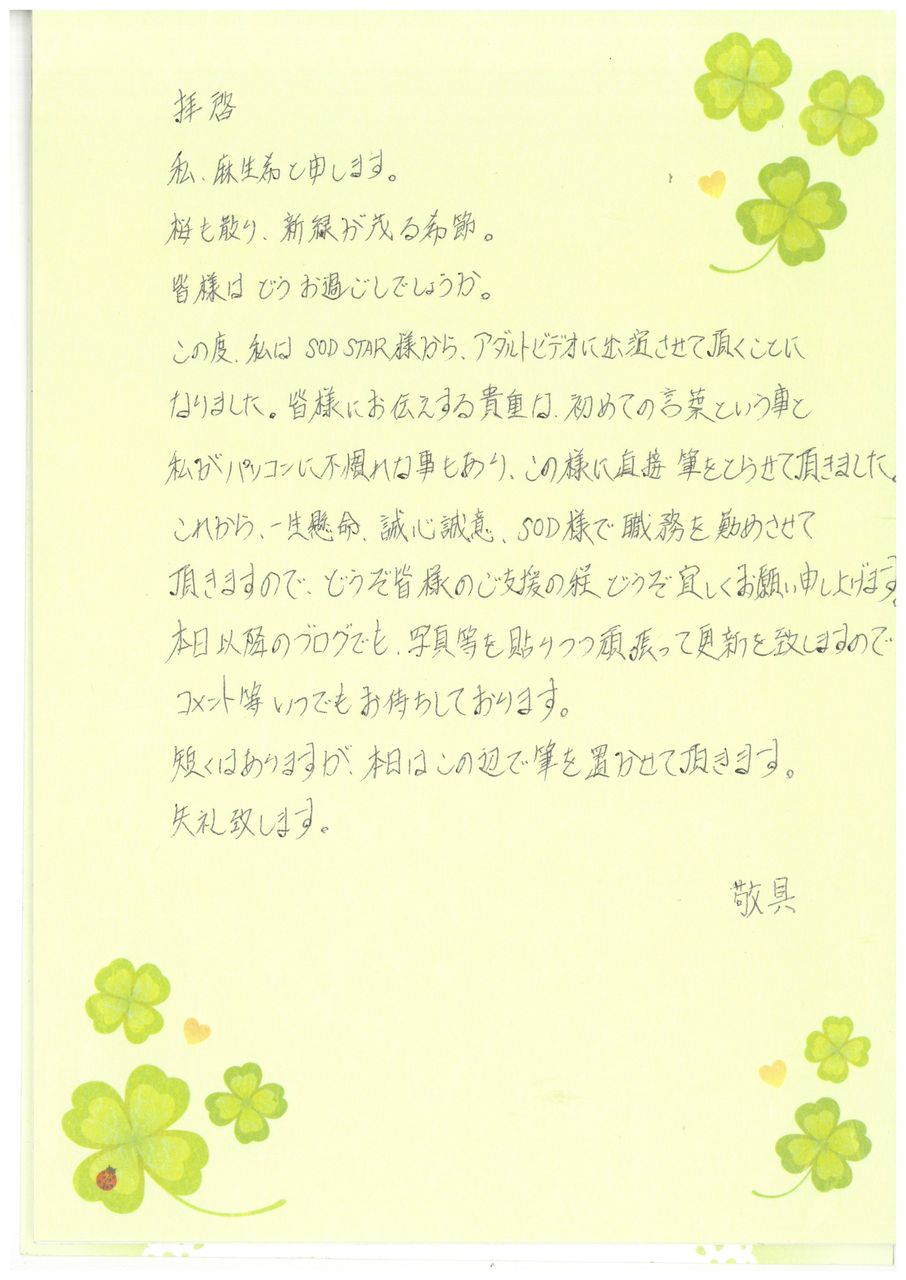 拝啓
私、麻生希と申します。
桜も散り、新緑が茂る希節。
皆様はどうお過ごしでしょうか。
この度、私はSOD STAR様から、アダルトビデオに出演させて頂くことに
なりました。皆様にお伝えする貴重な、初めての言葉という事と
私がパソコンに不慣れな事もあり、この様に直接 筆をとらせて頂きました。
これから、一生懸命、誠心誠意、SOD様で職務を勤めさせて
頂きますので、どうぞ皆様のご支援の程 どうぞ宜しくお願い申し上げます。
本日以降のブログでも、写真等を貼りつつ頑張って更新を致しますので
コメント等いつでもお待ちしております。
短くはありますが、本日はこの辺で筆を置かせて頂きます。
失礼致します。
敬具